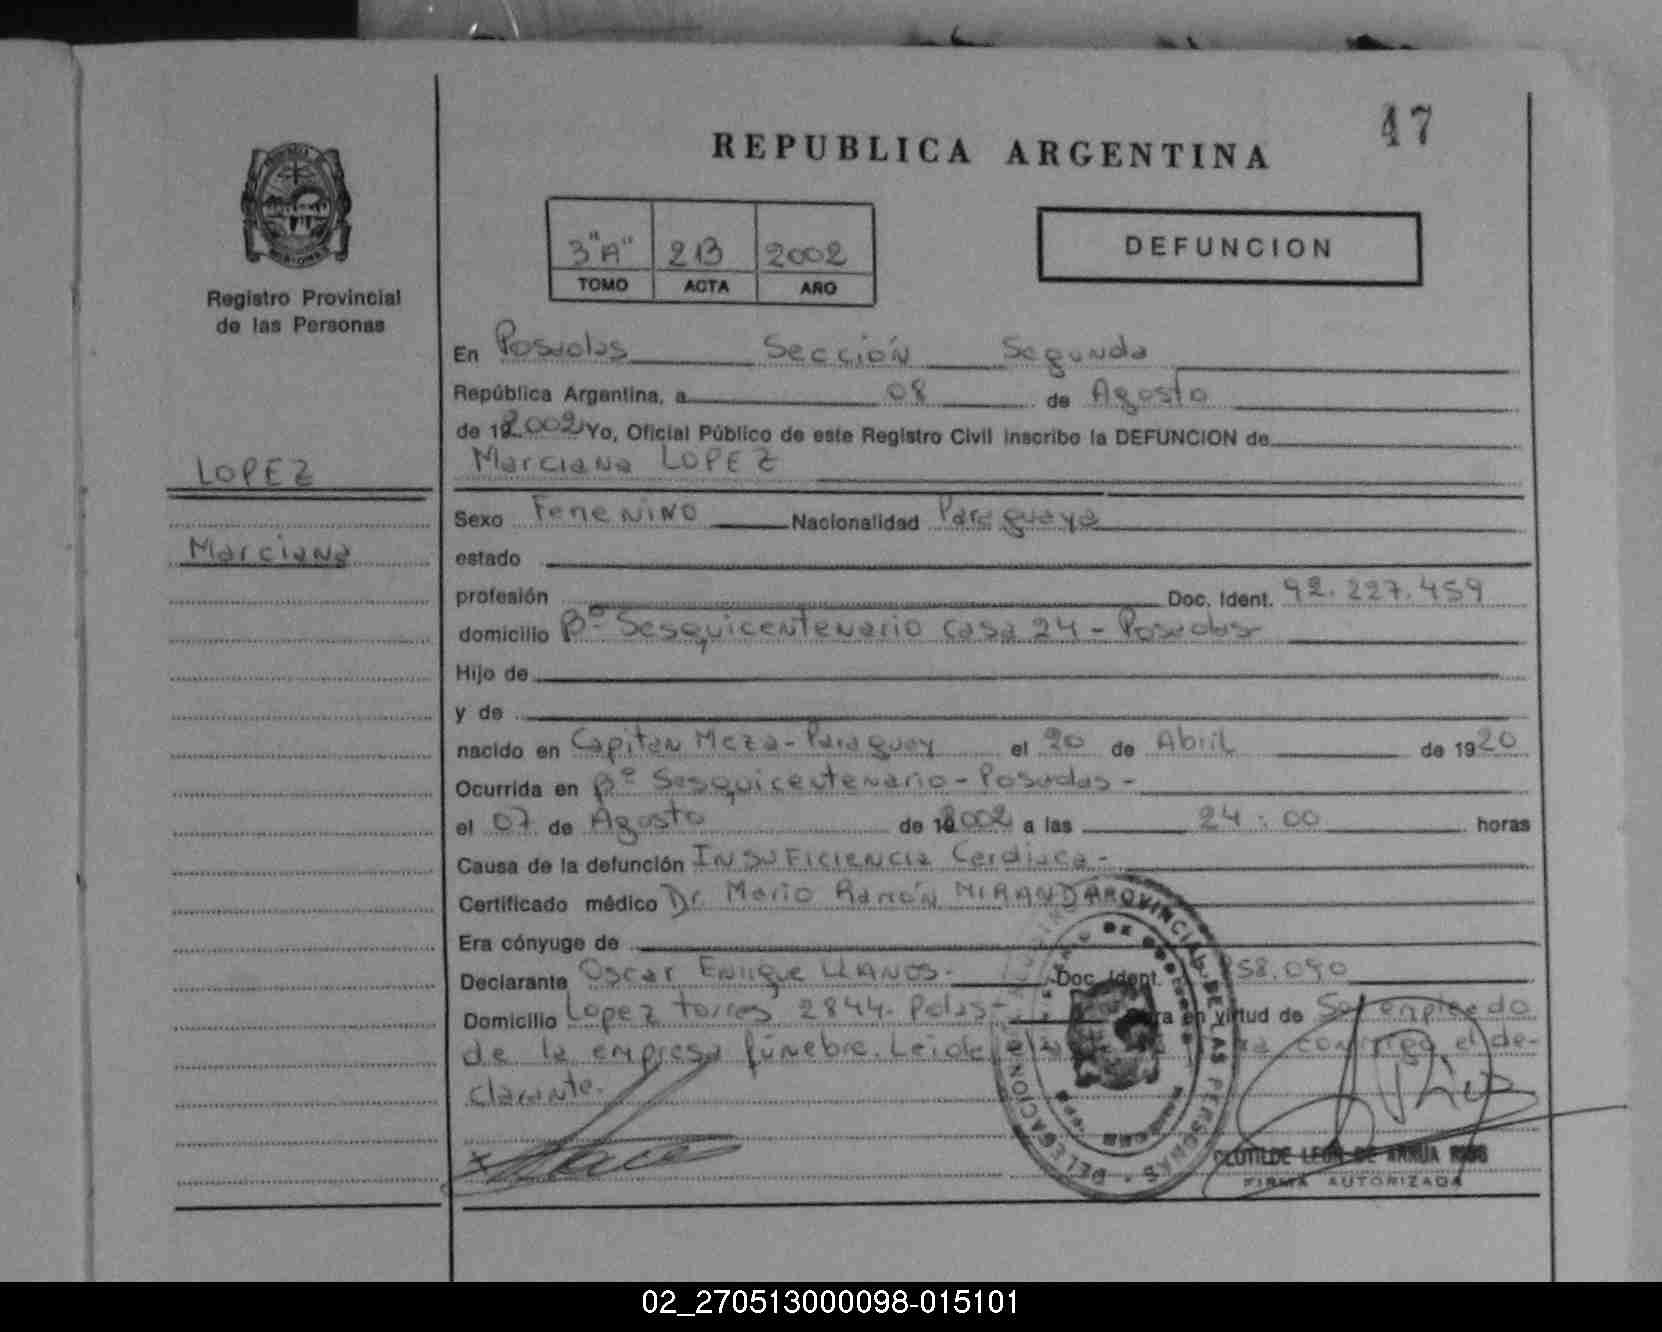 47
REPUBLICA ARGENTINA
3"A" 213 2002
TOMO ACTA AÑO
DEFUNCION
Registro Provincial
de las Personas
LOPEZ
Marciana
En Posadas Sección Segunda
República Argentina, a 08 de Agosto
de 19 2002 Yo, Oficial Público de este Registro Civil inscribo la DEFUNCION de
Marciana LOPEZ
Sexo Femenino Nacionalidad Paraguaya
estado
profesión Doc. Ident. 92.227.459
domicilio Bº Sesquicentenario casa 24 - Posadas
Hijo de
y de
nacido en Capitan Meza - Paraguay el 20 de Abril de 1920
Ocurrida en Bº Sesquicentenario - Posadas -
el 07 de Agosto de 19 2002 a las 24:00 horas
Causa de la defunción Insuficiencia Cardiaca -
Certificado médico Dr. Mario Ramón MIRANDA
Era cónyuge de
Declarante Oscar Enrique LLANOS. Doc. Ident. 58.090
Domicilio Lopez torres 2844. Pdas - en virtud de Ser empleado
de la empresa fúnebre. Leida el conmigo el de-
clarante.
PROVINCIAL DE LAS PERSONAS
DELEGACION
CLOTILDE LEON DE ARRUA RIOS
FIRMA AUTORIZADA
02_270513000098-015101